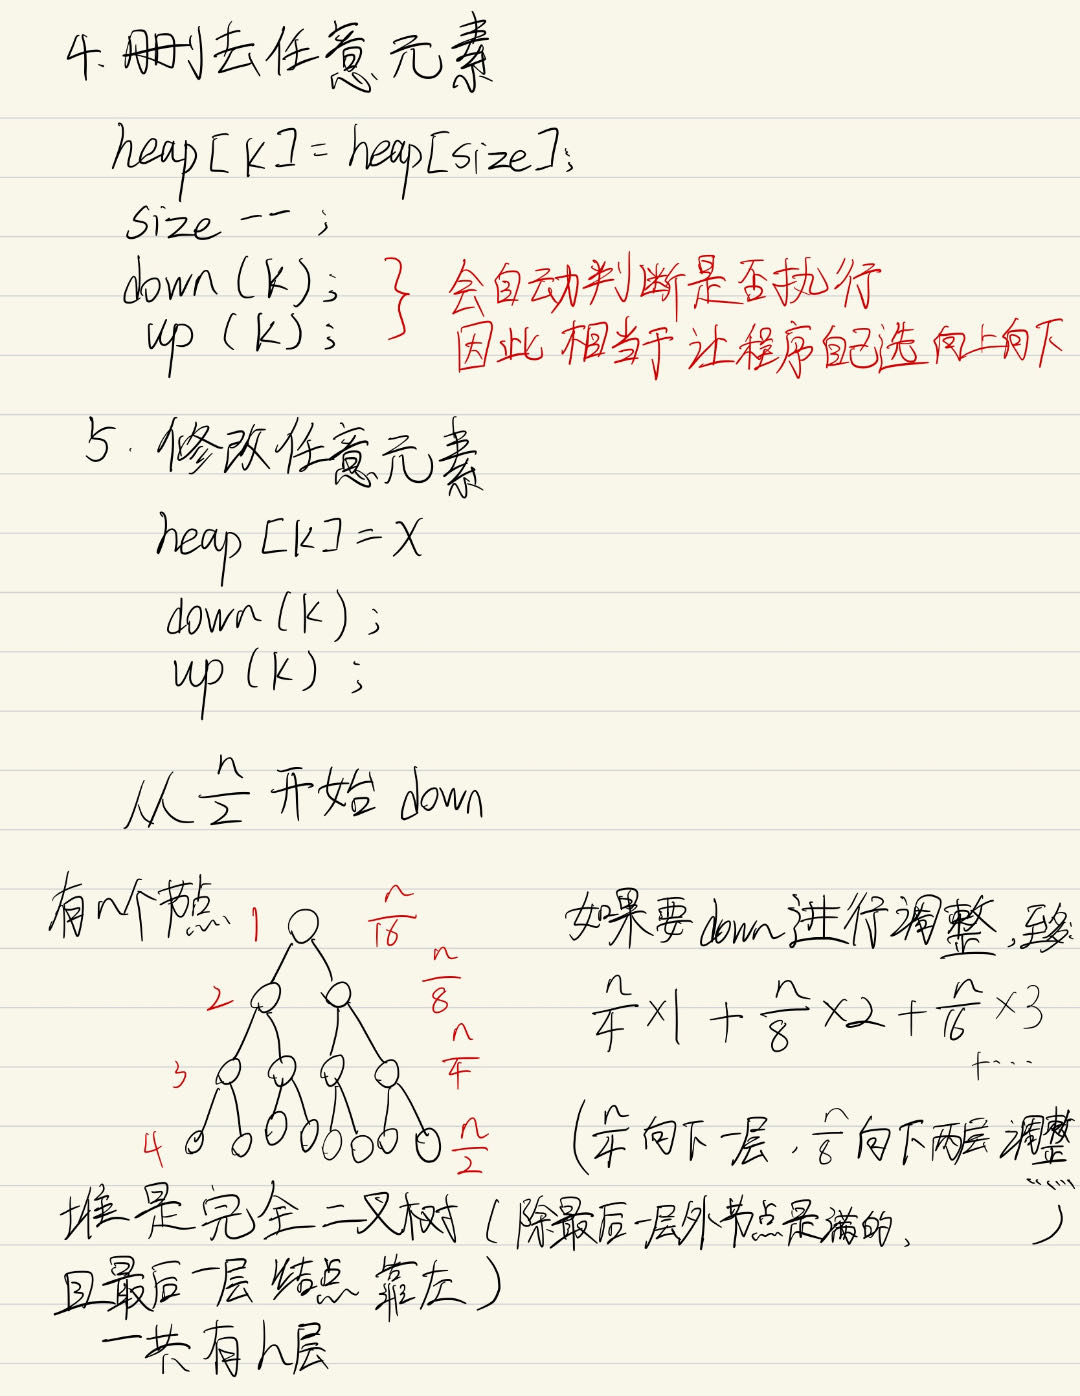 4. 删去任意元素
heap[k]=heap[size];
size -- ;
down (k);
up (k);
会自动判断是否执行
因此相当于让程序自己选向上向下
5. 修改任意元素
heap [k]=x
down (k);
up (k) ;
从 n/2 开始 down
有n个节点
1 n/16
2 n/8
3 n/4
4 n/2
如果要down进行调整,至多:
n/4 ×1 + n/8 ×2 + n/16 ×3
+ ...
(n/4 向下一层, n/8 向下两层调整
...... )
堆是完全二叉树 (除最后一层外节点是满的,
且最后一层结点靠左)
一共有h层